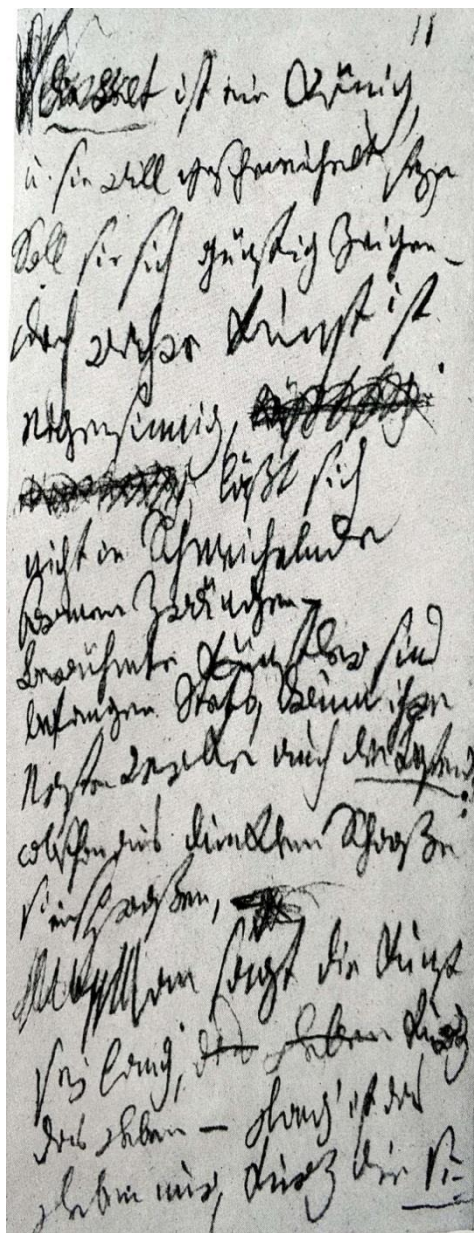 11
Die Welt ist ein König,
u. sie will geschmeichelt seyn
Soll sie sich günstig zeigen –
doch wahre Kunst ist
eigensinnig,
läßt sich
nicht in Schmeichelnde
Formen zwängen –
Berühmte Künstler sind
befangen stets, drum ihre
Ersten Werke auch die Besten,
obschon aus dunklem Schooße
sie entsproßen,
Man sagt die Kunst
sey lang, kurz
das Leben – Lang ist das
Leben nur, kurz die